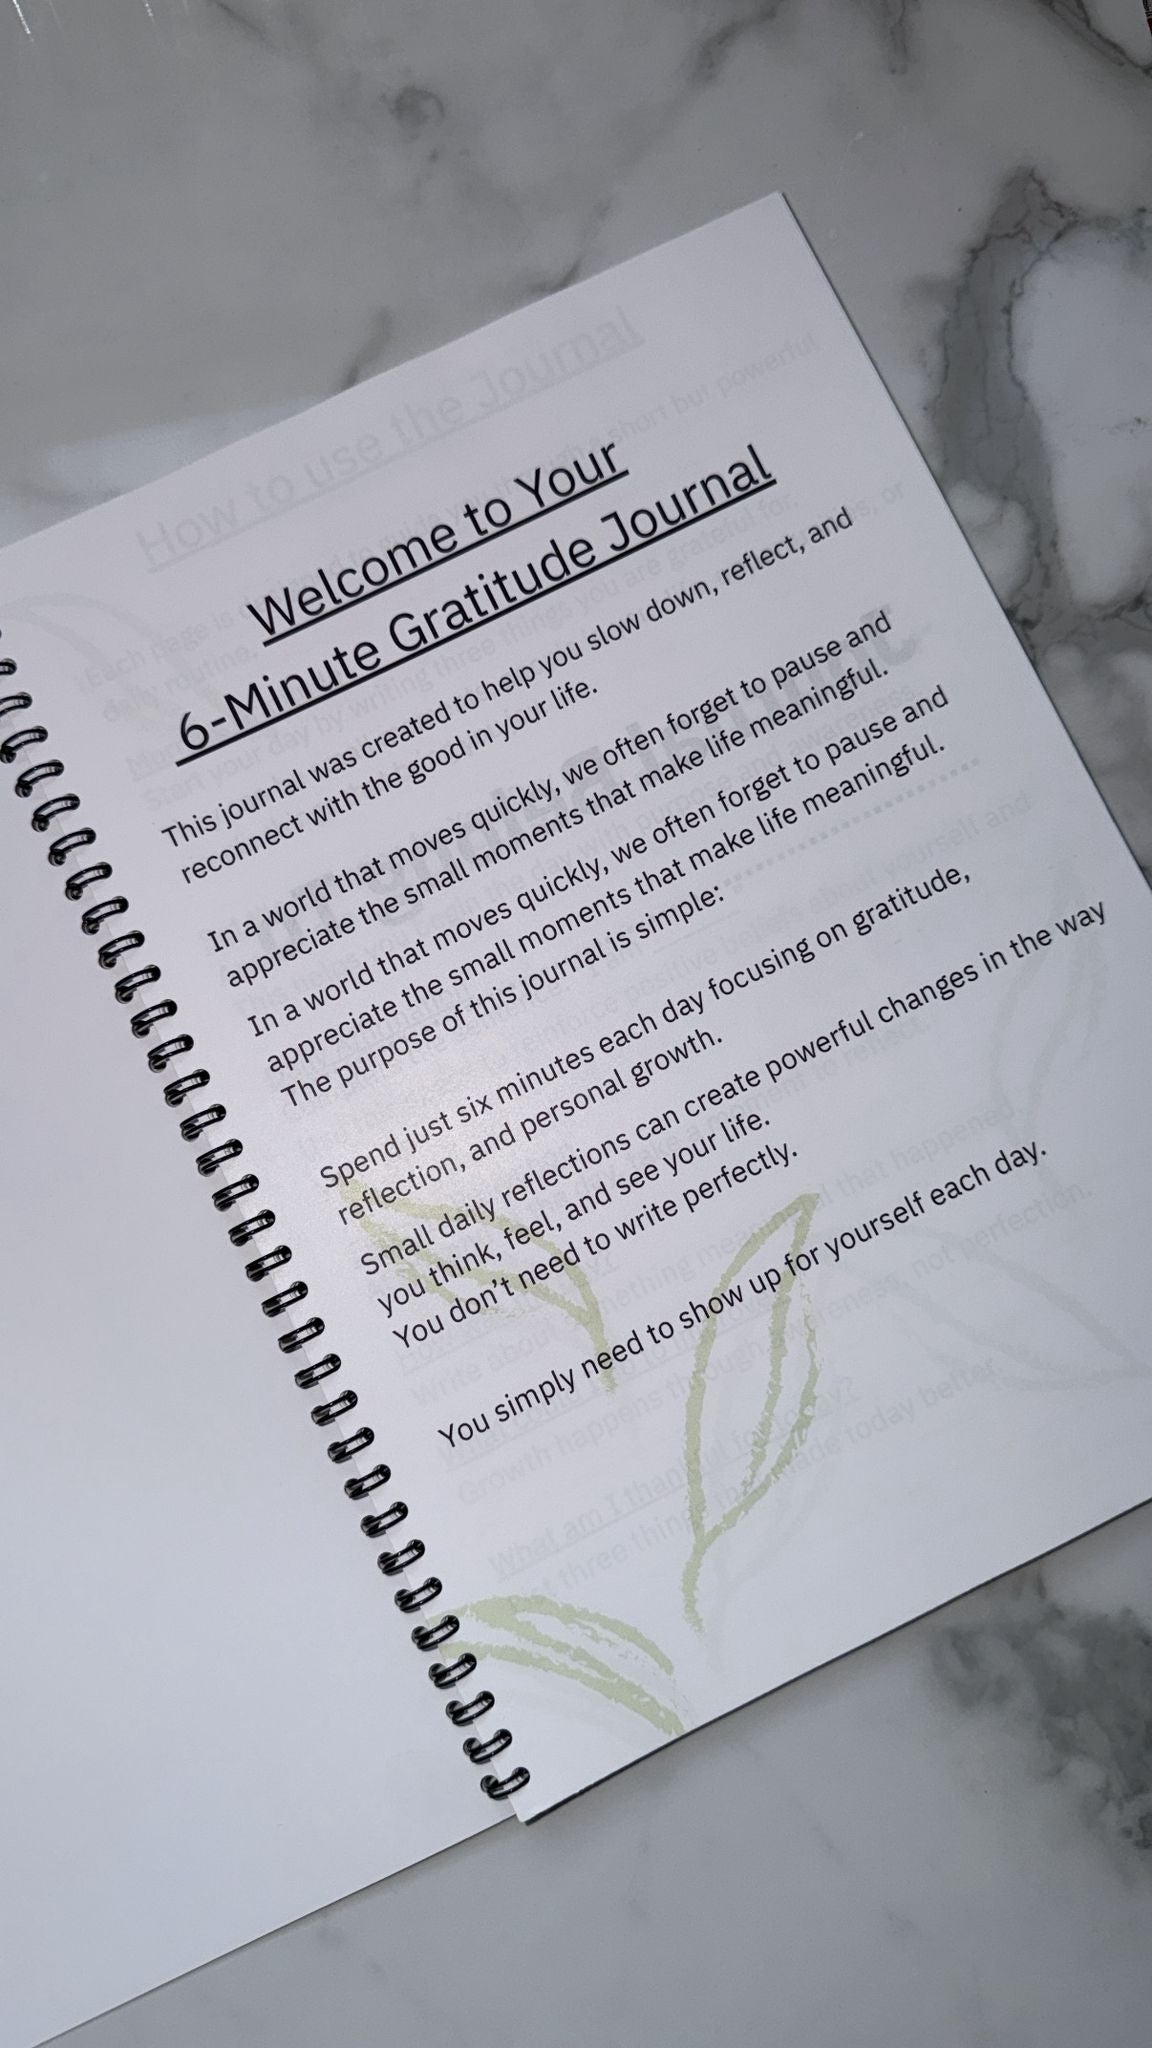 Welcome to Your
6-Minute Gratitude Journal
This journal was created to help you slow down, reflect, and
reconnect with the good in your life.
In a world that moves quickly, we often forget to pause and
appreciate the small moments that make life meaningful.
In a world that moves quickly, we often forget to pause and
appreciate the small moments that make life meaningful.
The purpose of this journal is simple:
Spend just six minutes each day focusing on gratitude,
reflection, and personal growth.
Small daily reflections can create powerful changes in the way
you think, feel, and see your life.
You don't need to write perfectly.
You simply need to show up for yourself each day.
How to use the Journal